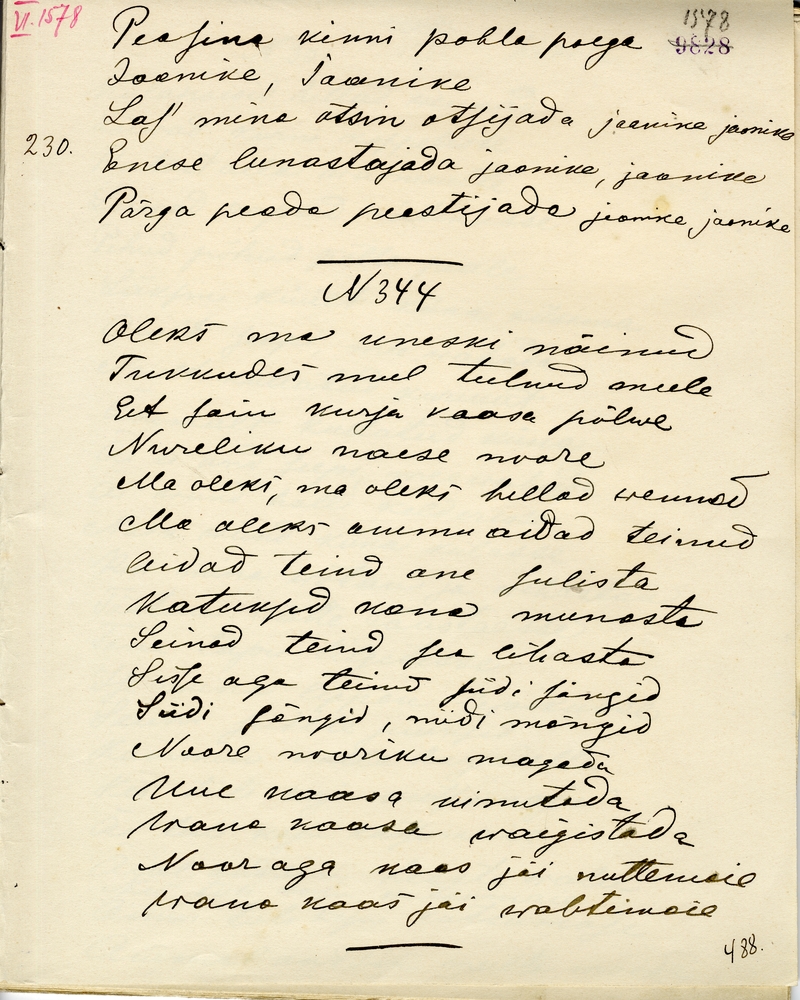 VI. 1578
1578
9828
Peasina kinni pohla poega
Joonike, Jaanike
Las' mina otsin otsijada jaanike jaanike
230. Enese lunastajada jaanike, jaanike
Pärga peada peastijada jaanike jaanike
N 344
Oleks ma uneski näinud
Tukkudes mul tulnud meele
Et sain kurja kaasa põlwe
Nureliku naese noore
Ma oleks, ma oleks hellad wennad
Ma oleks ammu aidad teinud
Aidad teind ane sulista
Katuksed kana munasta
Seinad teind sea lihasta
Sisse aga teind siidi sängid
Siidi sängid, niidi mängid
Noore nooriku mageda
Uue kaasa uinutada
Wana kaasa waigistada
Noor aga kaas jäi nuttemaie
Wana kaas jäi wahtimaie
488.